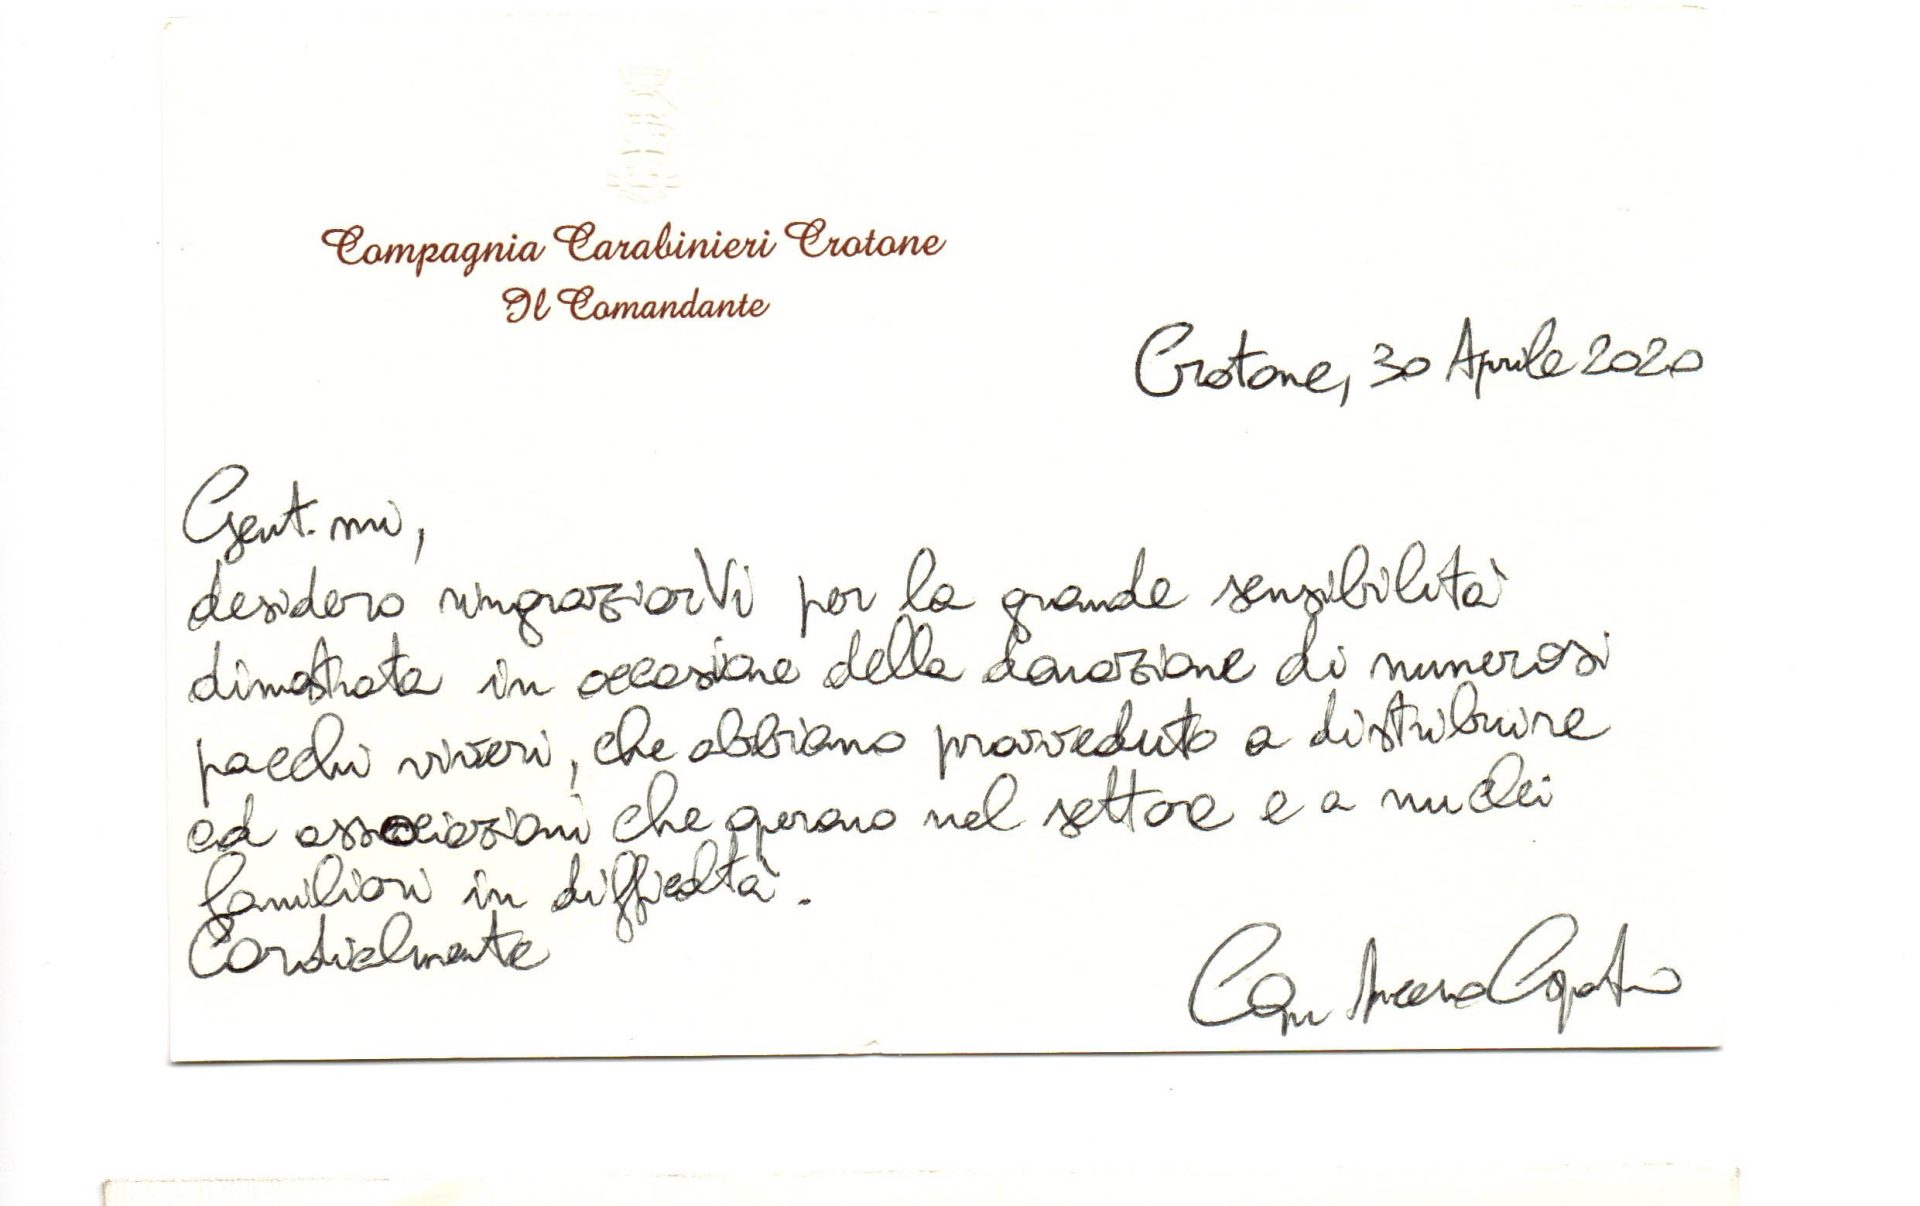 Compagnia Carabinieri Crotone
Il Comandante
Crotone, 30 Aprile 2020
Gent.mi,
desidero ringraziarVi per la grande sensibilità
dimostrata in occasione della donazione di numerosi
pacchi viveri, che abbiamo provveduto a distribuire
ad associazioni che operano nel settore e a nuclei
familiari in difficoltà.
Cordialmente
Cap.